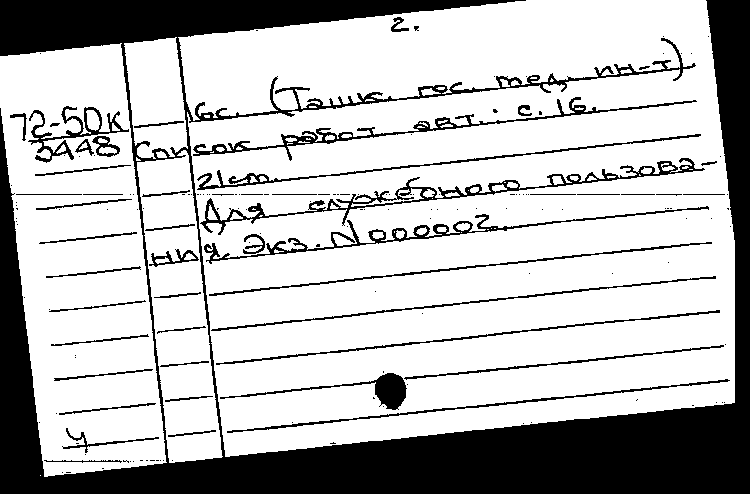 2.
72-50к 16с. (Ташк. гос. мед. ин-т).
3448 Список работ авт.: с. 16.
21см.
Для служебного пользова-
ния. Экз. N 000002.
ч